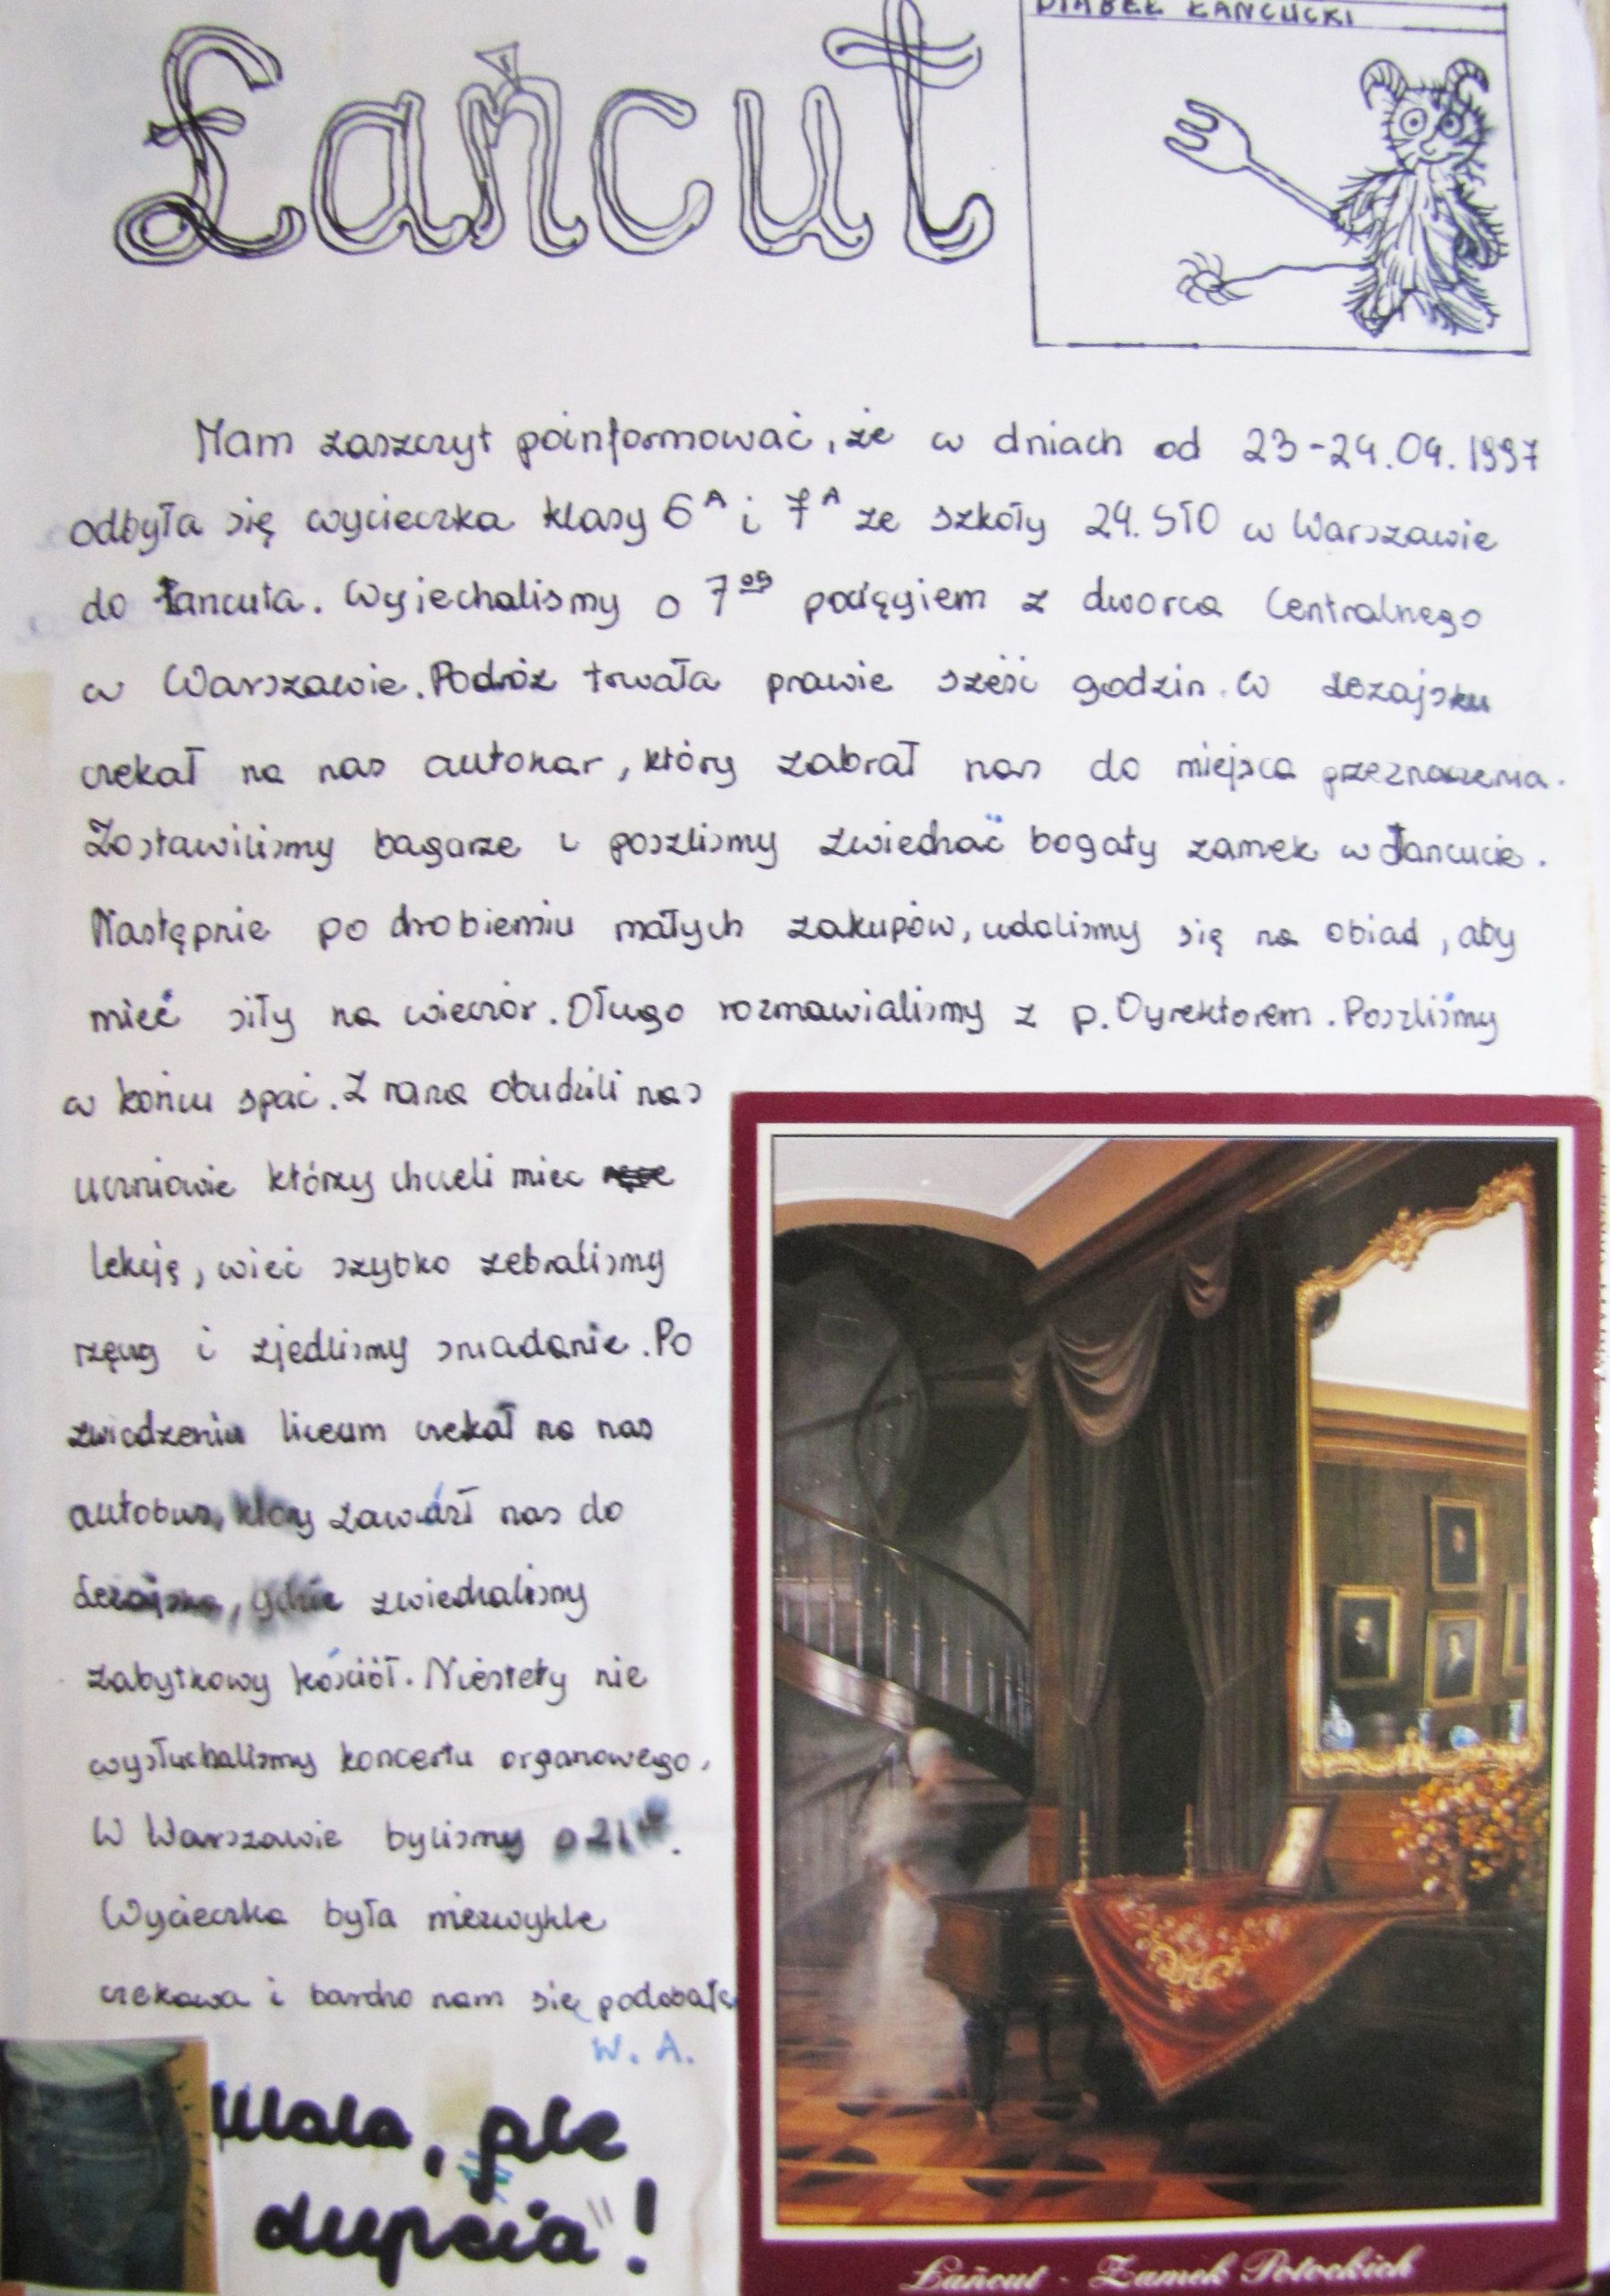 Łańcut
DIABEŁ ŁAŃCUCKI
Mam zaszczyt poinformować, że w dniach od 23-24.04.1997
odbyła się wycieczka klasy 6A i 7A ze szkoły 24. STO w Warszawie
do Łancuta. Wyjechalismy o 7 pociągiem z dworca Centralnego
w Warszawie. Podróż trwała prawie sześć godzin. W Leżajsku
czekał na nas autokar, który zabrał nas do miejsca przeznaczenia.
Zostawilismy bagarze i poszlismy zwiedzać bogaty zamek w Łancucie.
Następnie po drobieniu małych zakupów, udalismy się na obiad, aby
mieć siły na wieczór. Długo rozmawialismy z p. Dyrektorem. Poszliśmy
w końcu spać. Z rana obudzili nas
uczniowie którzy chcieli miec
lekcję, wieć szybko zebralismy
rzęczy i zjedlismy sniadanie. Po
zwiedzeniu liceum czekał na nas
autobus, który zawiózł nas do
Leżajska, gdzie zwiedzalismy
zabytkowy kościół. Niestety nie
wysłuchalismy koncertu organowego.
W Warszawie bylismy o 21.
Wycieczka była niezwykle
ciekawa i bardzo nam się podobała
W. A.
Mała, ale
dupcia"!
Łańcut - Zamek Potockich